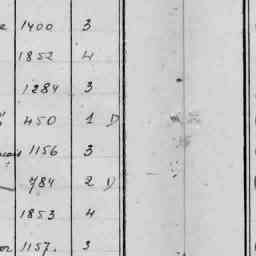 1400 3
1852 4
1284 3
450 1 D
1156 3
784 2 D
1853 4
1157. 3